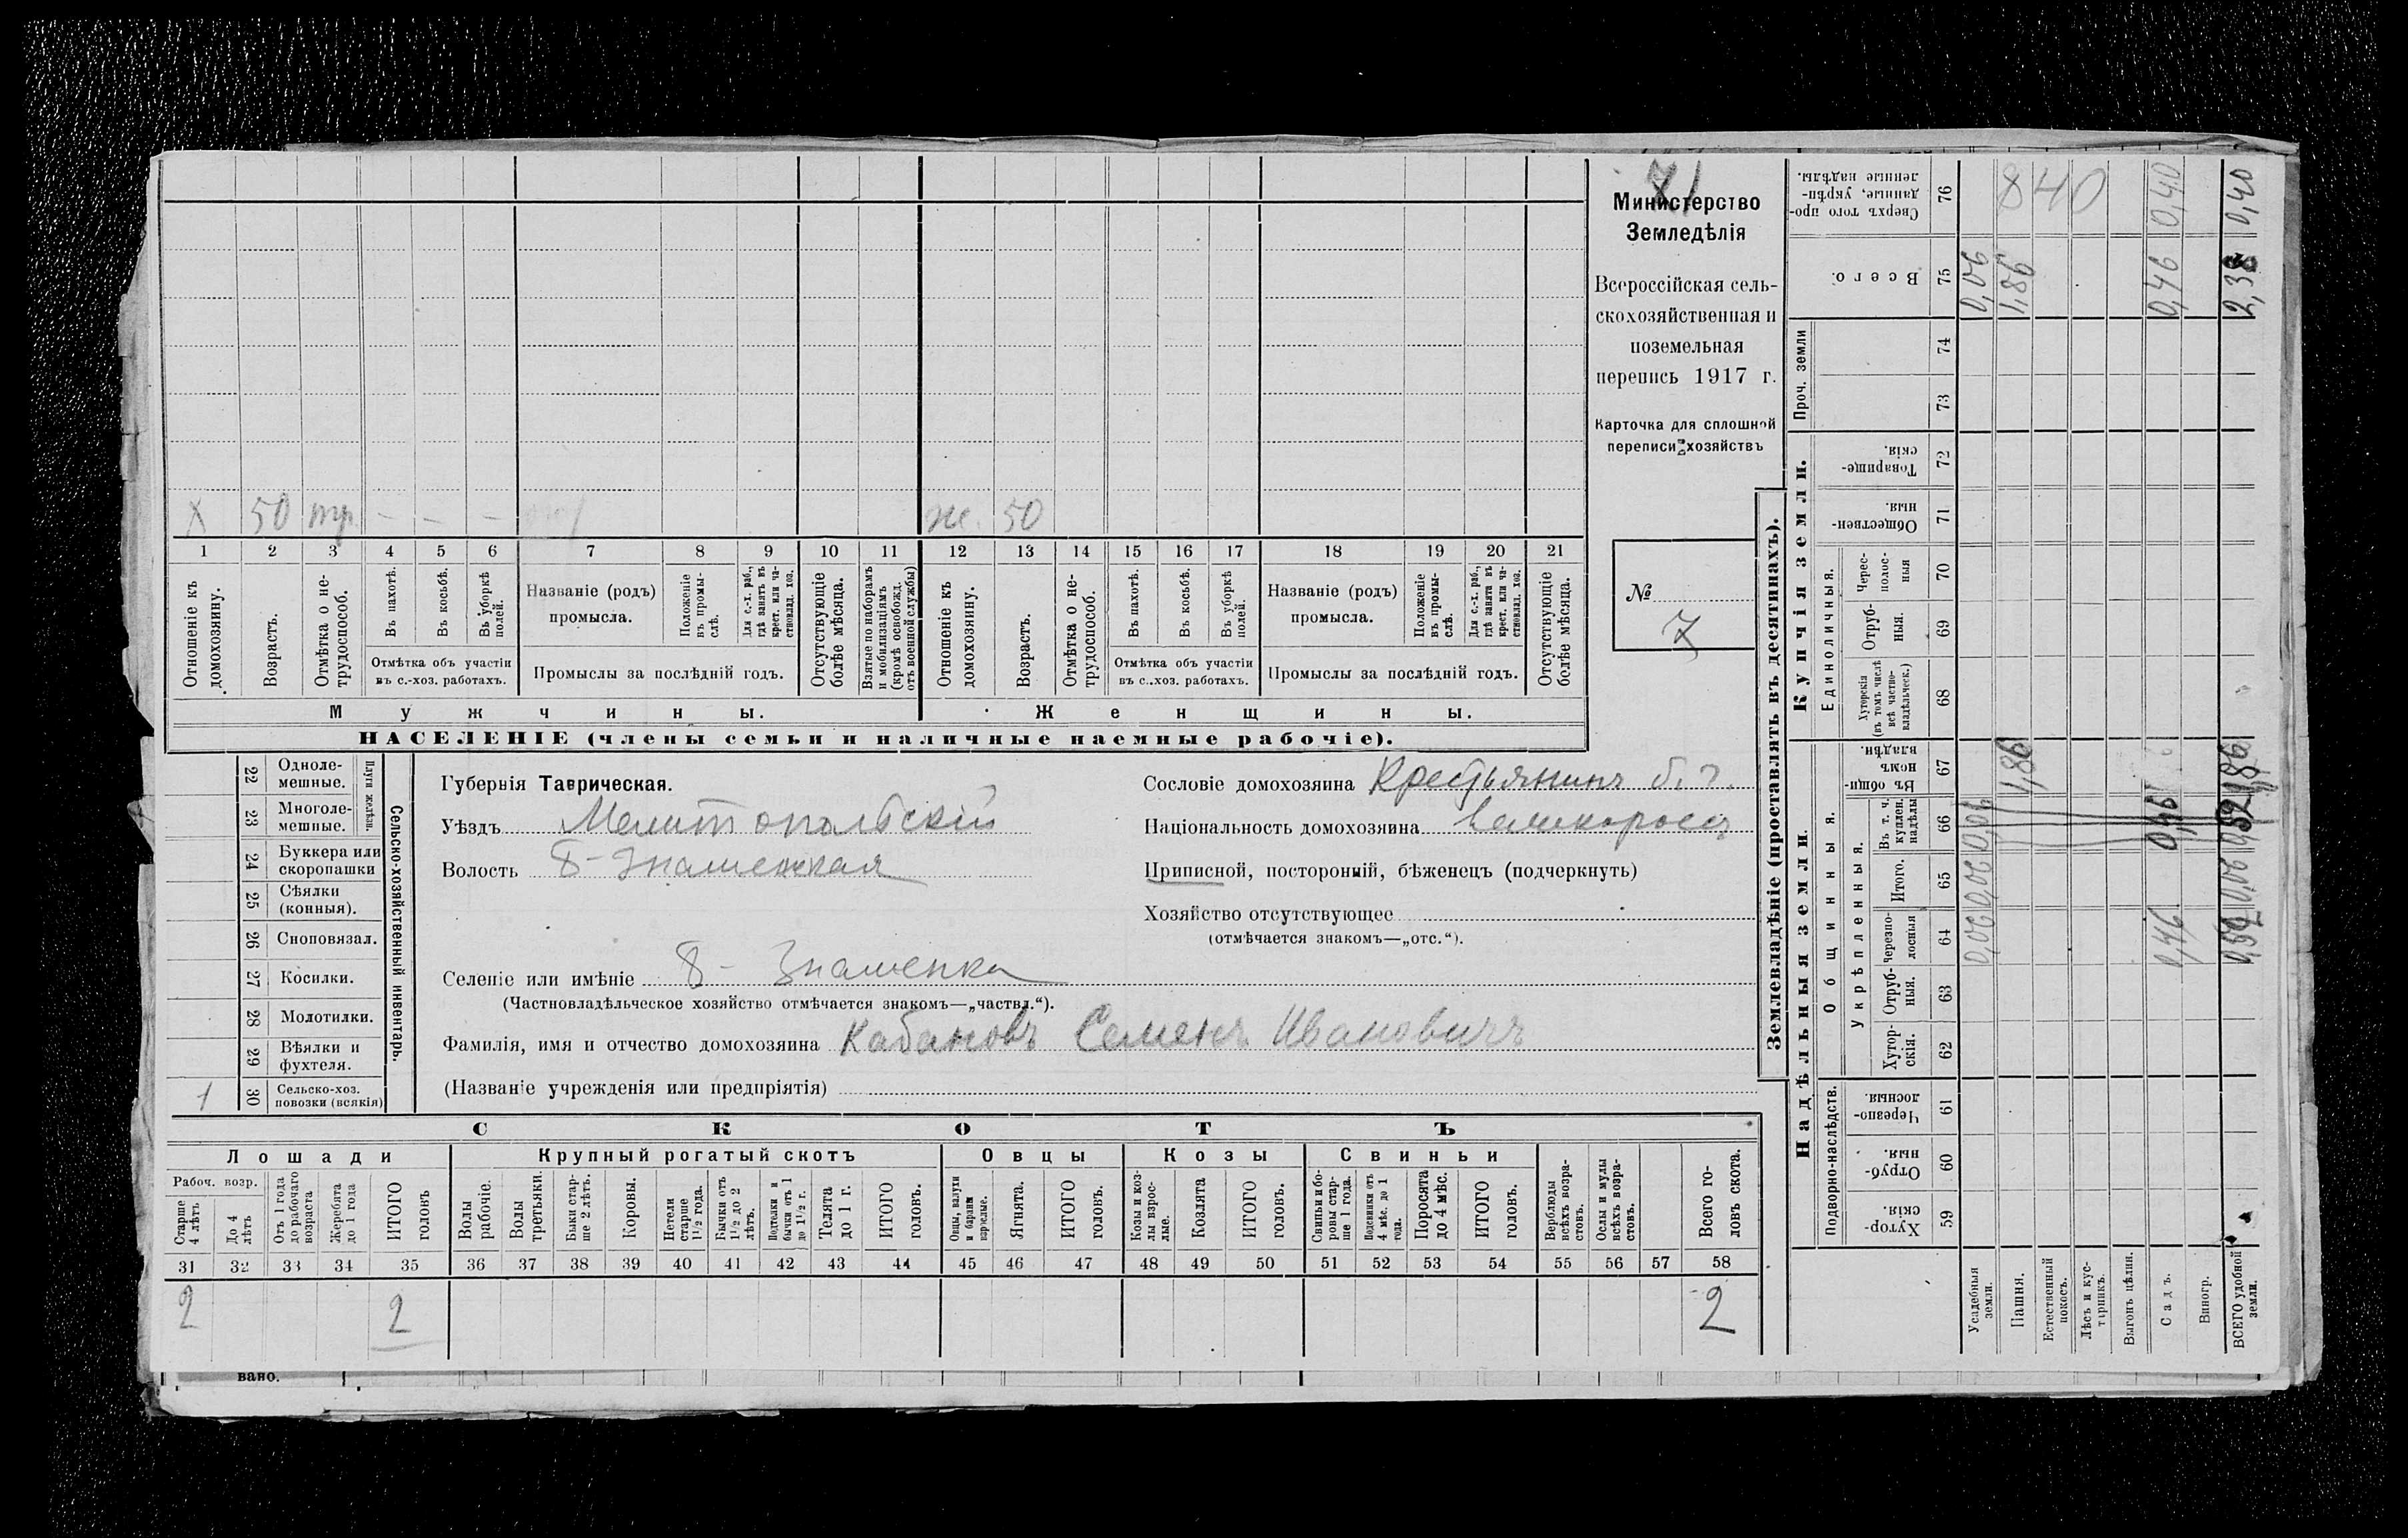 71
Министерство
Земледѣлія
Всероссійская сель-
скохозяйственная и
поземельная
перепись 1917 г.
Карточка для сплошной
переписи хозяйствъ
№
7
X 50 - - -
ж. 50
1 2 3 4 5 6 7 8 9 10 11 12 13 14 15 16 17 18 19 20 21
Отношеніе къ домохозяину.
Возрастъ.
Отмѣтка о не-трудоспособ.
Въ пахотѣ.
Въ косьбѣ.
Въ уборкѣ полей.
Отмѣтка объ участіи
въ с.-хоз. работахъ.
Названіе (родъ)
промысла.
Положеніе въ промы-слѣ.
Для с.-х. раб., гдѣ занятъ въ крест. или ча-стновлад. хоз.
Промыслы за послѣдній годъ.
Отсутствующіе болѣе мѣсяца.
Взятые по наборамъ и мобилизаціямъ (кромѣ освобожд. отъ военной службы)
Отношеніе къ домохозяину.
Возрастъ.
Отмѣтка о не-трудоспособ.
Въ пахотѣ.
Въ косьбѣ.
Въ уборкѣ полей.
Отмѣтка объ участіи
въ с.-хоз. работахъ.
Названіе (родъ)
промысла.
Положеніе въ промы-слѣ.
Для с.-х. раб., гдѣ занята въ крест. или ча-стновлад. хоз.
Промыслы за послѣдній годъ.
Отсутствующіе болѣе мѣсяца.
Мужчины. Женщины.
НАСЕЛЕНІЕ (члены семьи и наличные наемные рабочіе).
Сельско-хозяйственный инвентарь.
Плуги желѣзн.
22 Одноле-мешные.
23 Многоле-мешные.
24 Буккера или скоропашки
25 Сѣялки (конныя).
26 Сноповязал.
27 Косилки.
28 Молотилки.
29 Вѣялки и фухтеля.
1 30 Сельско-хоз. повозки (всякія)
Губернія Таврическая.
Уѣздъ Мелитопольскій
Волость Б-Знаменская
Сословіе домохозяина Крестьянинъ
Національность домохозяина великороссъ
Приписной, посторонній, бѣженецъ (подчеркнуть)
Хозяйство отсутствующее
(отмѣчается знакомъ—„отс.“).
Селеніе или имѣніе Б- Знаменка
(Частновладѣльческое хозяйство отмѣчается знакомъ—„частвл.“).
Фамилія, имя и отчество домохозяина Кабановъ Семенъ Ивановичъ
(Названіе учрежденія или предпріятія)
СКОТЪ
Лошади Крупный рогатый скотъ Овцы Козы Свиньи
Рабоч. возр.
Старше 4 лѣтъ
До 4 лѣтъ
Отъ 1 года до рабочаго возраста
Жеребята до 1 года
ИТОГО головъ
Волы рабочіе.
Волы третьяки.
Быки стар-ше 2 лѣтъ.
Коровы.
Нетели старше 1½ года.
Бычки отъ 1½ до 2 лѣтъ.
Подтелки и бычки отъ 1 до 1½ г.
Телята до 1 г.
ИТОГО головъ.
Овцы, валухи и бараны взрослые.
Ягнята.
ИТОГО головъ.
Козы и коз-лы взрос-лые.
Козлята
ИТОГО головъ.
Свиньи и бо-ровы стар-ше 1 года.
Подсвинки отъ 4 мѣс. до 1 года.
Поросята до 4 мѣс.
ИТОГО головъ.
Верблюды всѣхъ возра-стовъ.
Ослы и мулы всѣхъ возра-стовъ.
Всего го-ловъ скота.
31 32 33 34 35 36 37 38 39 40 41 42 43 44 45 46 47 48 49 50 51 52 53 54 55 56 57 58
2 2 2
вано.
Землевладѣніе (проставлять въ десятинахъ).
Надѣльныя земли. Купчія земли. Проч. земли
Подворно-наслѣдств.
Общинныя.
Укрѣпленныя.
Единоличныя.
Хутор-скія. 59
Отруб-ныя. 60
Черезпо-лосныя. 61
Хутор-скія. 62
Отруб-ныя. 63
Черезпо-лосныя 64
Итого. 65
Въ т. ч. куплен. надѣлы 66
Въ общин-номъ владѣн. 67
Хуторскія (въ томъ числѣ всѣ частно-владѣльческ.) 68
Отруб-ныя. 69
Черес-полос-ныя 70
Обществен-ныя. 71
Товарище-скія. 72
73
74
Всего. 75
Сверхъ того про-данные, укрѣп-ленные надѣлы. 76
Усадебныя земли. 0,06 0,06 0,06 0,06
Пашня. 1,86 1,86
Естественный покосъ.
Лѣсъ и кус-тарникъ.
Выгонъ цѣлин.
Садъ. 0,46 0,46 0,46 0,40
Виногр.
ВСЕГО удобной земли. 0,52 1,86 2,38 0,40
840